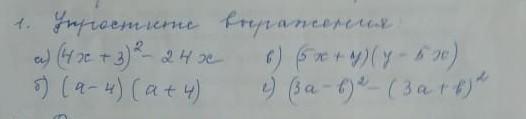 1. Упростить выражения:
а) (4x + 3)² - 24x в) (5x + y)(y - 5x)
б) (a - 4)(a + 4) г) (3a - b)² - (3a + b)²